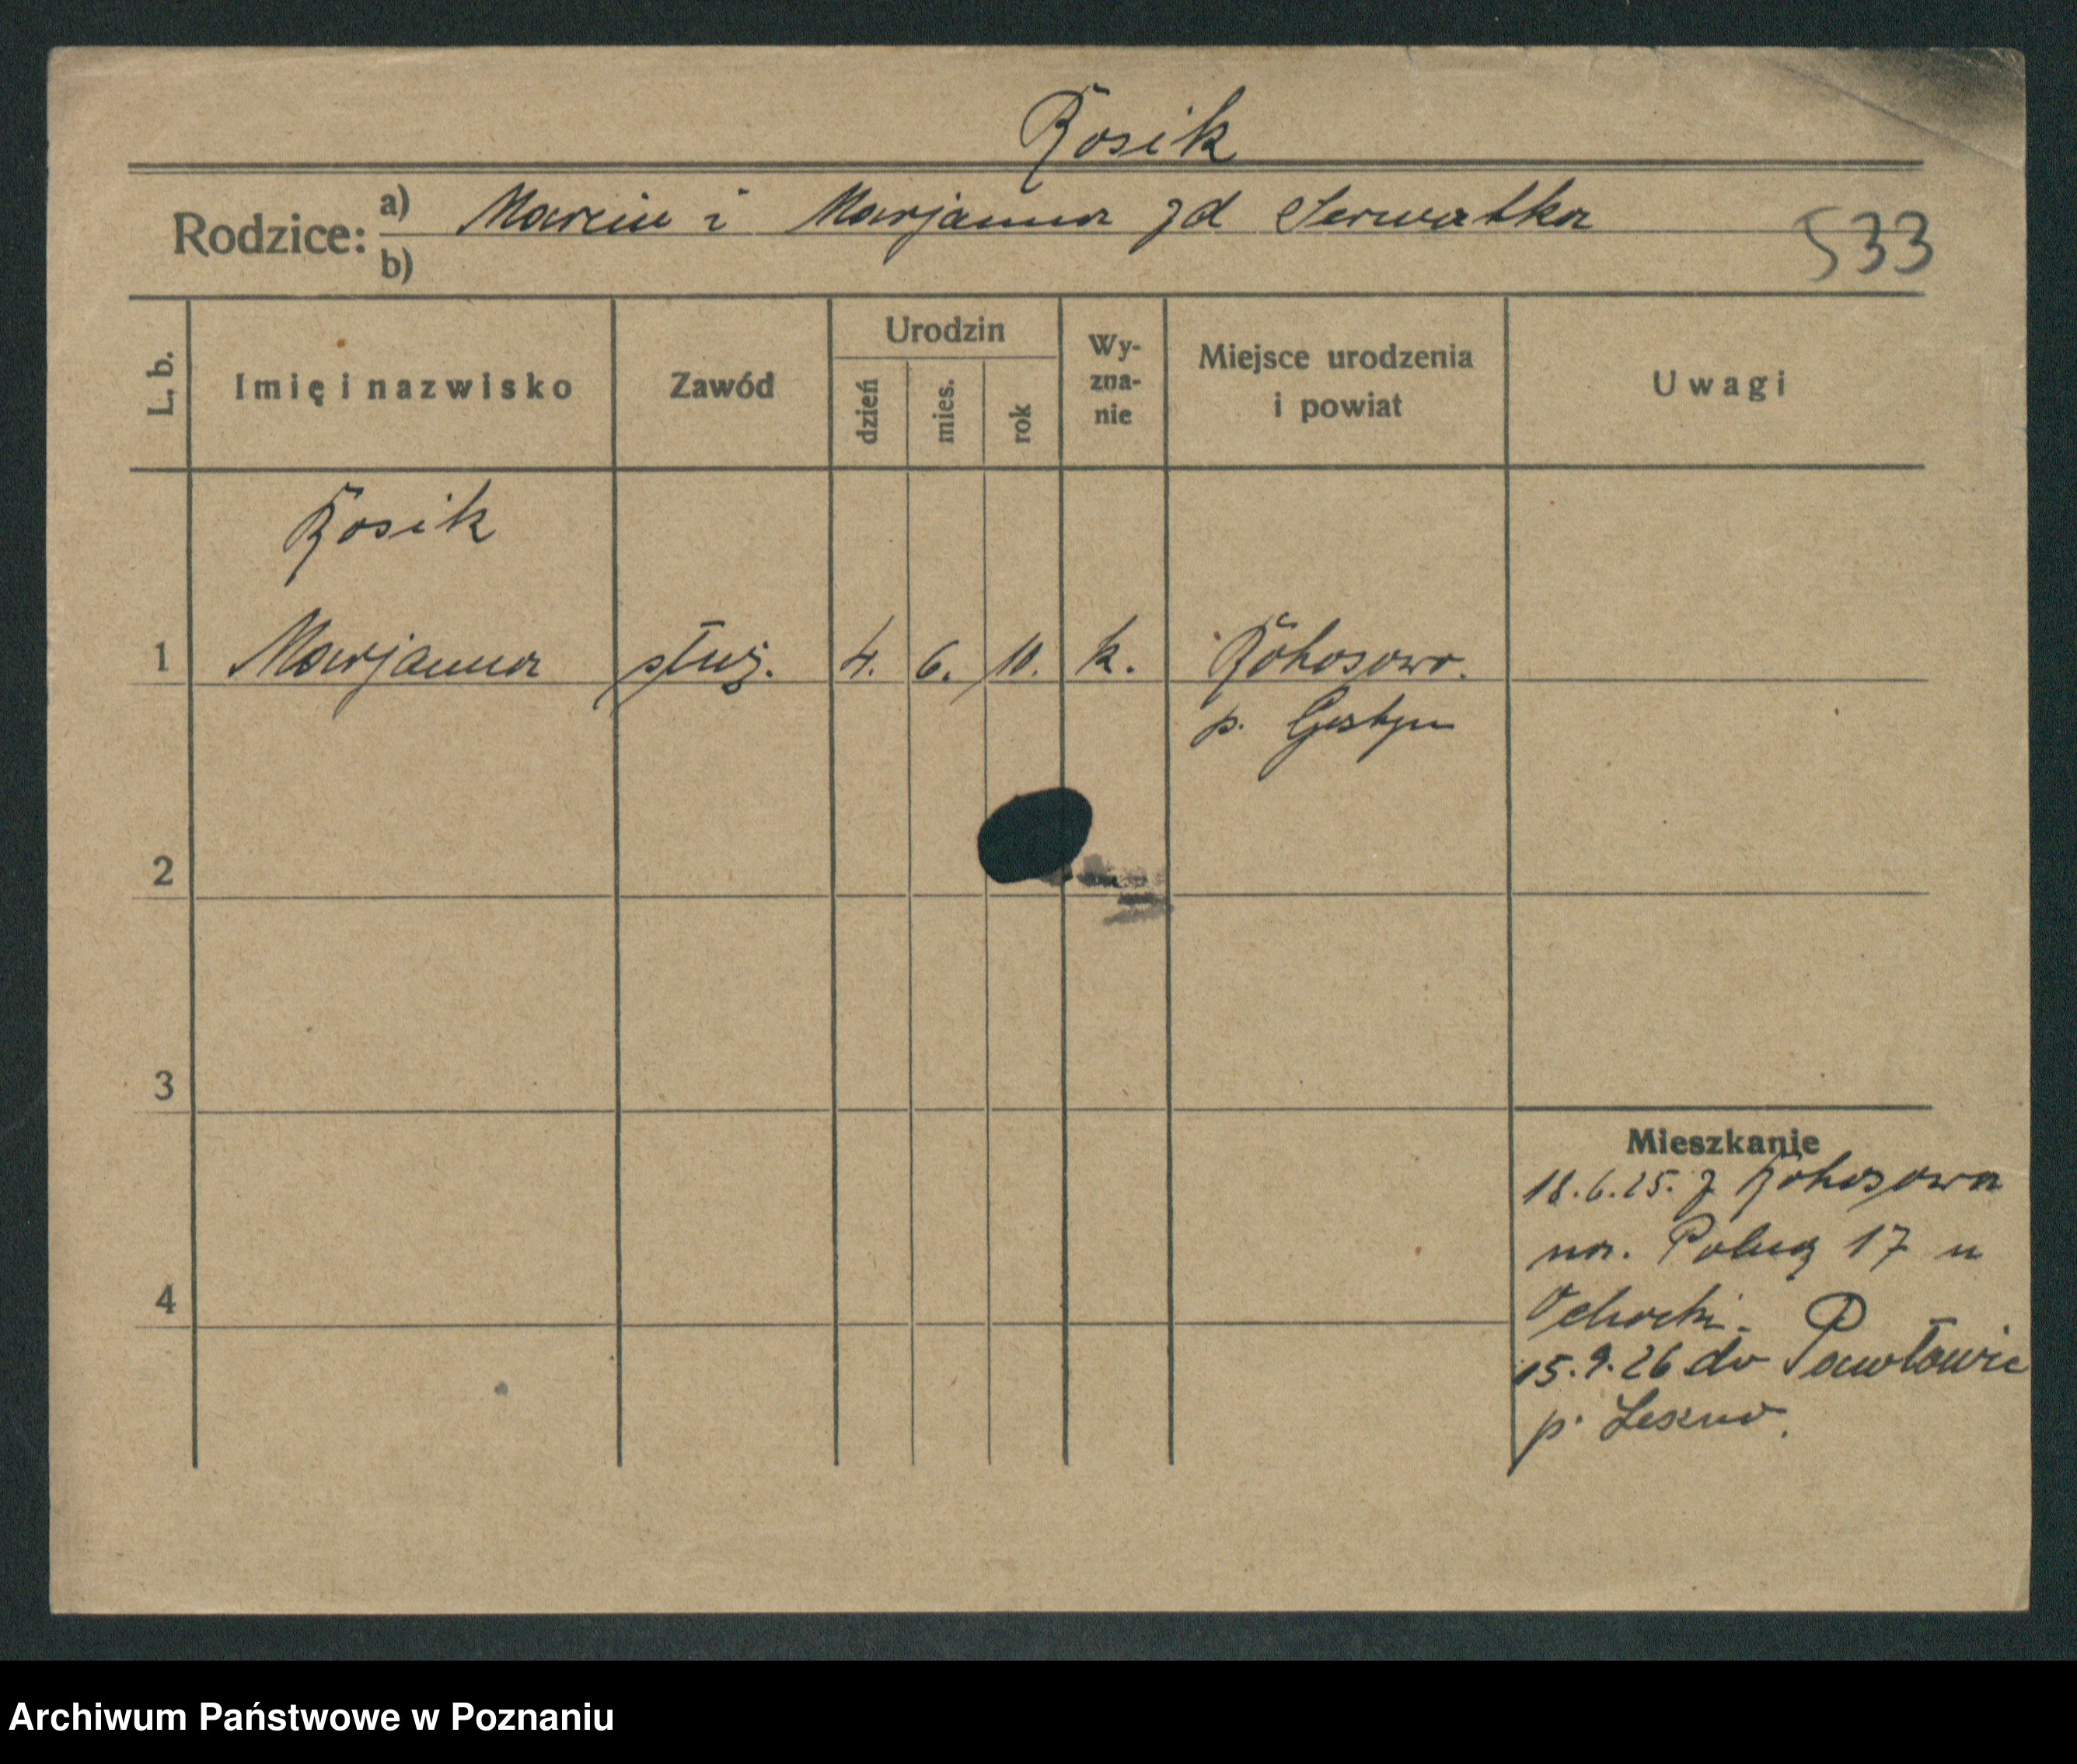 Rosik
Rodzice: a) Marcin i Marjanna zd Serwatka
b)
533
L. b.
Imię i nazwisko
Zawód
Urodzin
dzień
mies.
rok
Wy-
zna-
nie
Miejsce urodzenia
i powiat
Uwagi
Rosik
1 Marjanna służ. 4. 6. 10. k. Rokosowo.
p. Gostyń
2
3
4
Mieszkanie
18.6.25. z Rokosowa
na. 17 u
15.9.26 do Pawłowic
p. Leszno.
Archiwum Państwowe w Poznaniu